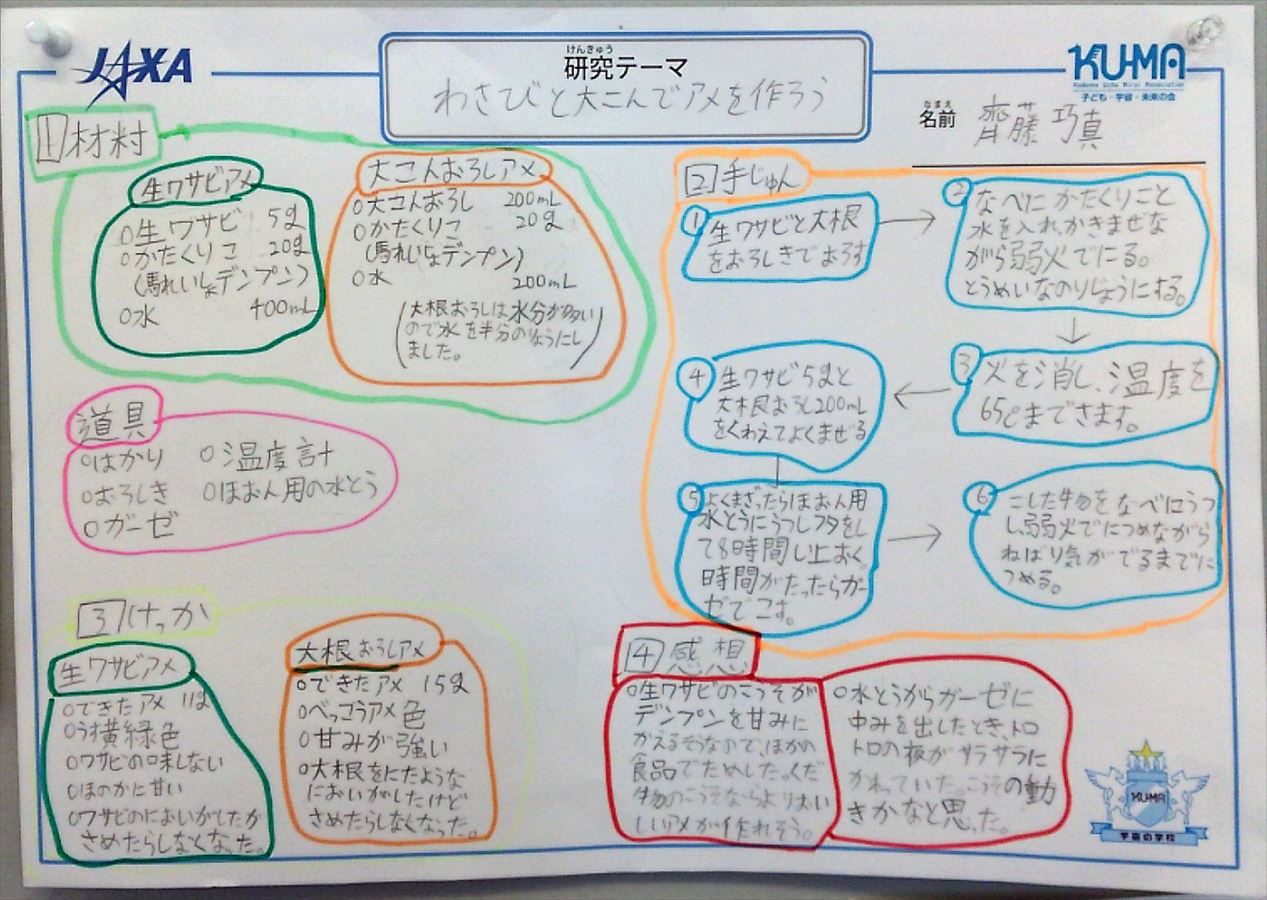 JAXA
けんきゅう
研究テーマ
わさびと大こんでアメを作ろう
KU-MA
子ども・宇宙・未来の会
なまえ
名前 齊藤 巧真
1 材料
生ワサビアメ
○生ワサビ 5g
○かたくりこ 20g
(馬れいしょデンプン)
○水 400mL
大こんおろしアメ
○大こんおろし 200mL
○かたくりこ 20g
(馬れいしょデンプン)
○水 200mL
(大根おろしは水分が多い
ので水を半分のりょうにし
ました。)
道具
○はかり ○温度計
○おろしき ○ほおん用の水とう
○ガーゼ
2 手じゅん
① 生ワサビと大根
をおろしきでおろす
② なべにかたくりこと
水を入れ、かきまぜな
がら弱火でにる。
とうめいなのりじょうにする。
③ 火を消し、温度を
65℃まで さます。
④ 生ワサビ5gと
大根おろし200mL
をくわえてよくまぜる
⑤ よくまざったらほおん用
水とうにうつしフタをし
て8時間以上おく。
時間がたったらガー
ゼでこす。
⑥ こした物をなべにうつ
し、弱火でにつめながら
ねばり気がでるまでに
つめる。
3 けっか
生ワサビアメ
○できたアメ 11g
○うす黄緑色
○ワサビの味しない
○ほのかに甘い
○ワサビのにおいがしたが
さめたらしなくなった。
大根おろしアメ
○できたアメ 15g
○べっこうアメ色
○甘みが強い
○大根をにたような
においがしたけど
さめたらしなくなった。
4 感想
○生ワサビのこうそが
デンプンを甘みに
かえるそうなので、ほかの
食品でためしたい。くだ
物のこうそならよりおい
しいアメが作れそう。
○水とうからガーゼに
中みを出したとき、トロ
トロの液がサラサラに
かわっていた。こうその動
きかなと思った。
KU-MA
宇宙の学校